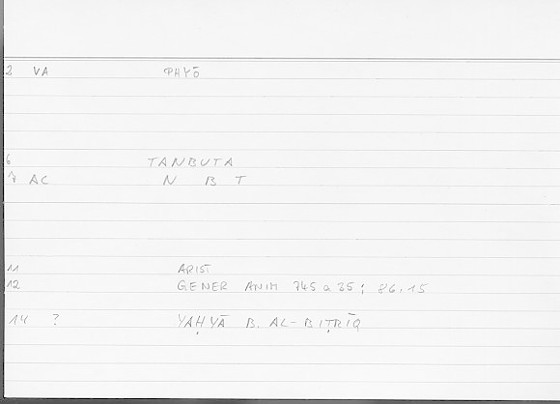 2 VA PHYŌ
6 TANBUTA
7 AC N B T
11 ARIST
12 GENER ANIM 745 a 35; 86.15
14 ? YAḤYĀ B. AL-BIṬRĪQ